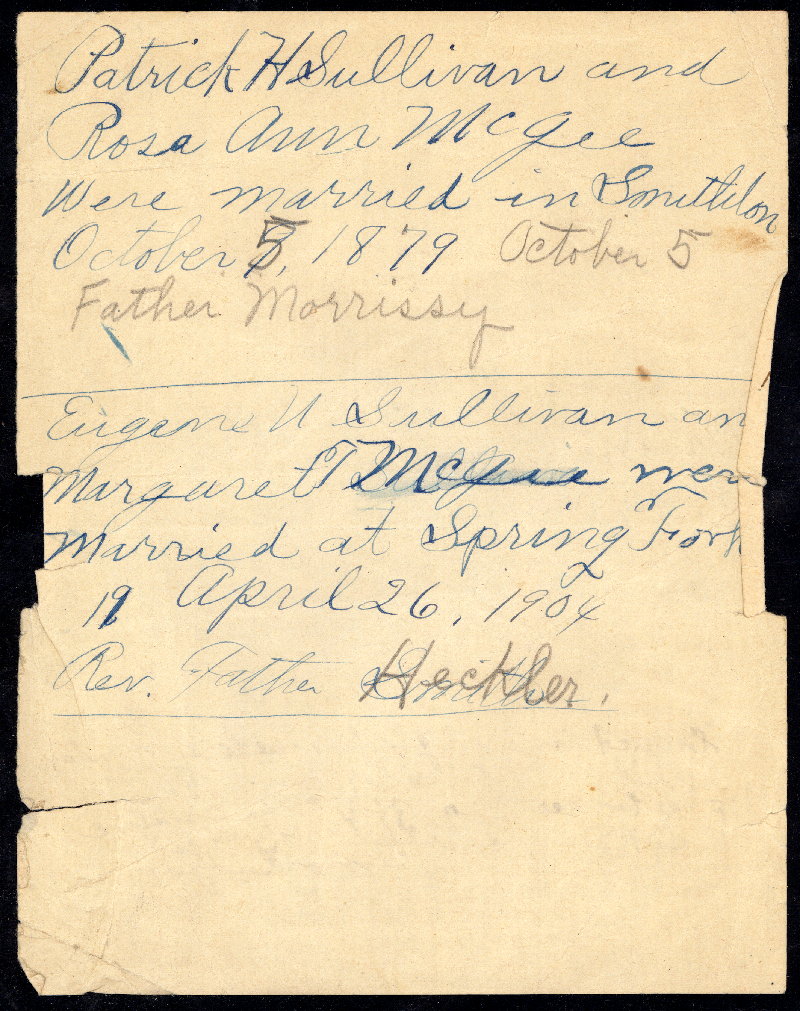 Patrick H Sullivan and
Rosa Ann McGee
were married in Smithton
October 5, 1879 October 5
Father Morrissy
Eugene N Sullivan an
Margaret T McGee were
married at Spring Fork
19 April 26, 1904
Rev. Father Heckler.